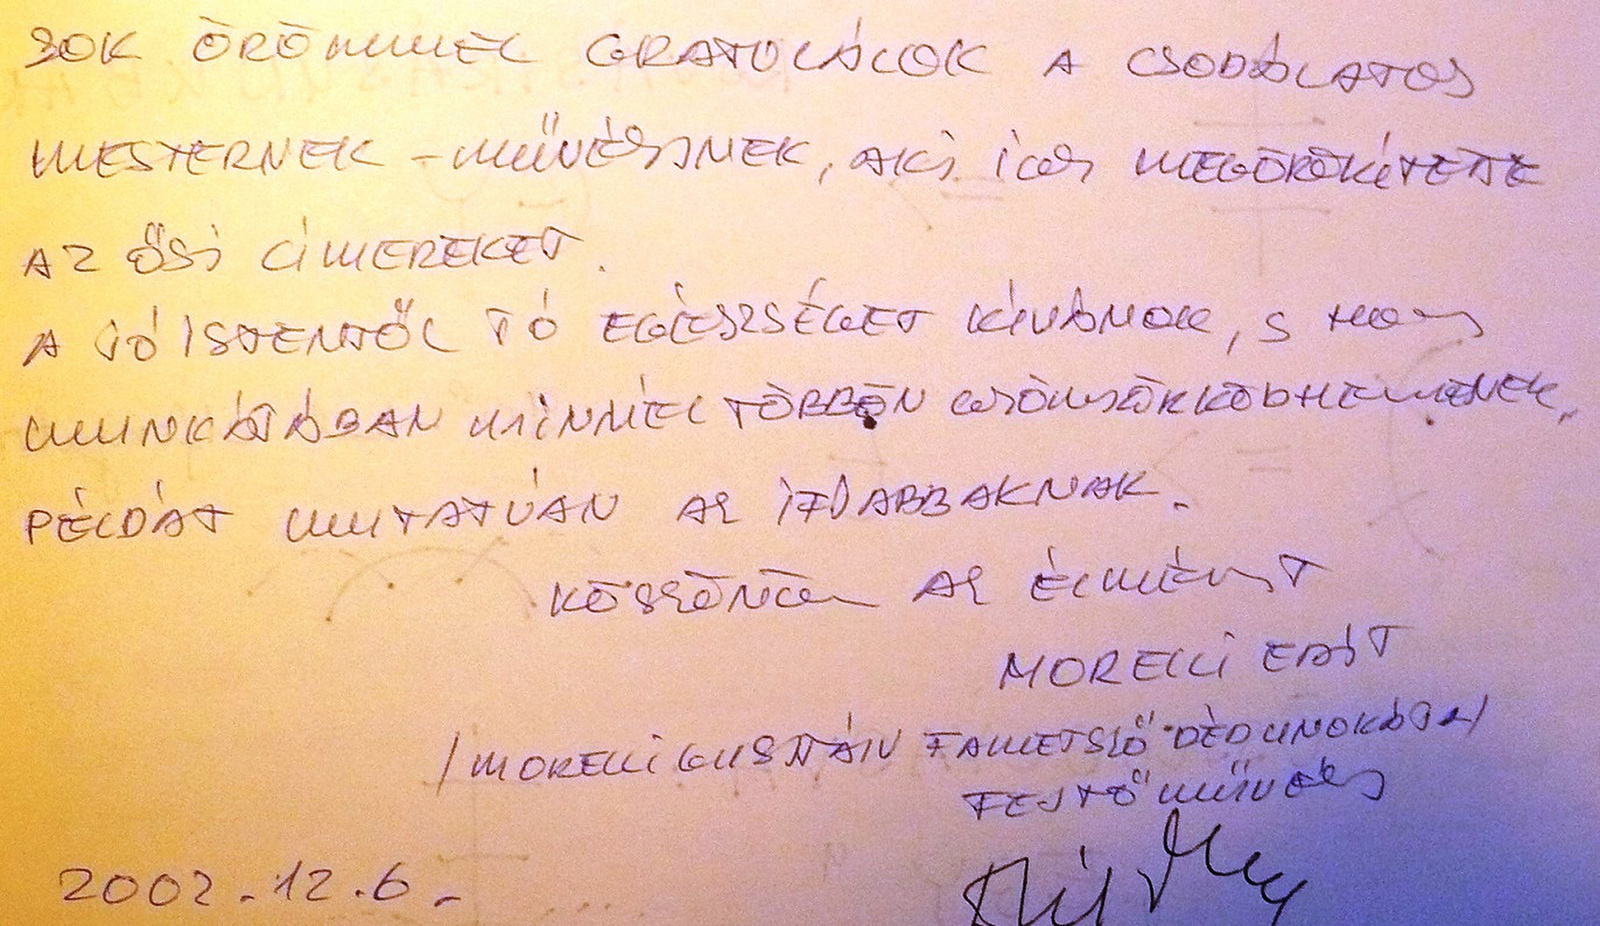 SOK ÖRÖMMEL GRATULÁLOK A CSODÁLATOS
MESTERNEK - MŰVÉSZNEK, AKI ÍGY MEGÖRÖKÍTETTE
AZ ŐSI CÍMEREKET.
A JÓ ISTENTŐL JÓ EGÉSZSÉGET KÍVÁNOK, S HOGY
MUNKÁJÁBAN MINNÉL TÖBBEN GYÖNYÖRKÖDHESSENEK,
PÉLDÁT MUTATVÁN AZ IFJABBAKNAK.
KÖSZÖNÖM AZ ÉLMÉNYT
MORELLI EDIT
/MORELLI GUSZTÁV FAMETSZŐ DÉDUNOKÁJA/
FESTŐMŰVÉSZ
2002.12.6.